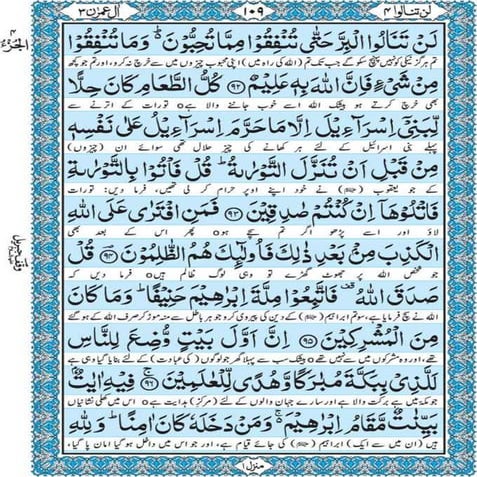 لَنْ تَنَالُوا ۴ ۱۰۹ اٰلِ عِمْرٰن ۳
الجزء ۴
لَنْ تَنَالُوا الْبِرَّ حَتّٰى تُنْفِقُوْا مِمَّا تُحِبُّوْنَ ؕ وَمَا تُنْفِقُوْا
تم ہرگز نیکی کو نہیں پہنچ سکو گے جب تک تم (اللہ کی راہ میں) اپنی محبوب چیزوں میں سے خرچ نہ کرو، اور تم جو کچھ
مِنْ شَيْءٍ فَاِنَّ اللّٰهَ بِهٖ عَلِيْمٌ ﴿۹۲﴾ كُلُّ الطَّعَامِ كَانَ حِلًّا
بھی خرچ کرتے ہو بیشک اللہ اسے خوب جاننے والا ہے o تورات کے اترنے سے
لِّبَنِيْۤ اِسْرَآءِيْلَ اِلَّا مَا حَرَّمَ اِسْرَآءِيْلُ عَلٰى نَفْسِهٖ
پہلے بنی اسرائیل کے لئے ہر کھانے کی چیز حلال تھی سوائے ان (چیزوں)
مِنْ قَبْلِ اَنْ تُنَزَّلَ التَّوْرٰىةُ ؕ قُلْ فَاْتُوْا بِالتَّوْرٰىةِ
کے جو یعقوب (علیہ السلام) نے خود اپنے اوپر حرام کر لی تھیں، فرما دیں: تورات
فَاتْلُوْهَاۤ اِنْ كُنْتُمْ صٰدِقِيْنَ ﴿۹۳﴾ فَمَنِ افْتَرٰى عَلَى اللّٰهِ
لاؤ اور اسے پڑھو اگر تم سچے ہو o پھر اس کے بعد بھی
الْكَذِبَ مِنْۢ بَعْدِ ذٰلِكَ فَاُولٰٓئِكَ هُمُ الظّٰلِمُوْنَ ﴿۹۴﴾ قُلْ
جو شخص اللہ پر جھوٹ گھڑے تو وہی لوگ ظالم ہیں o فرما دیں کہ
وقف جبريل
صَدَقَ اللّٰهُ ۟ فَاتَّبِعُوْا مِلَّةَ اِبْرٰهِيْمَ حَنِيْفًا ؕ وَمَا كَانَ
اللہ نے سچ فرمایا ہے، سو تم ابراہیم (علیہ السلام) کے دین کی پیروی کرو جو ہر باطل سے منہ موڑ کر صرف اللہ کے ہو گئے
مِنَ الْمُشْرِكِيْنَ ﴿۹۵﴾ اِنَّ اَوَّلَ بَيْتٍ وُّضِعَ لِلنَّاسِ
تھے، اور وہ مشرکوں میں سے نہیں تھے o بیشک سب سے پہلا گھر جو لوگوں (کی عبادت) کے لئے بنایا گیا وہی ہے
لَلَّذِيْ بِبَكَّةَ مُبٰرَكًا وَّهُدًى لِّلْعٰلَمِيْنَ ﴿۹۶﴾ فِيْهِ اٰيٰتٌۢ
جو مکہ میں ہے برکت والا ہے اور سارے جہان والوں کے لئے (مرکزِ) ہدایت ہے o اس میں کھلی نشانیاں
بَيِّنٰتٌ مَّقَامُ اِبْرٰهِيْمَ ۚ وَمَنْ دَخَلَهٗ كَانَ اٰمِنًا ؕ وَلِلّٰهِ
ہیں (ان میں سے ایک) ابراہیم (علیہ السلام) کی جائے قیام ہے، اور جو اس میں داخل ہو گیا امان پا گیا،
منزل ۱